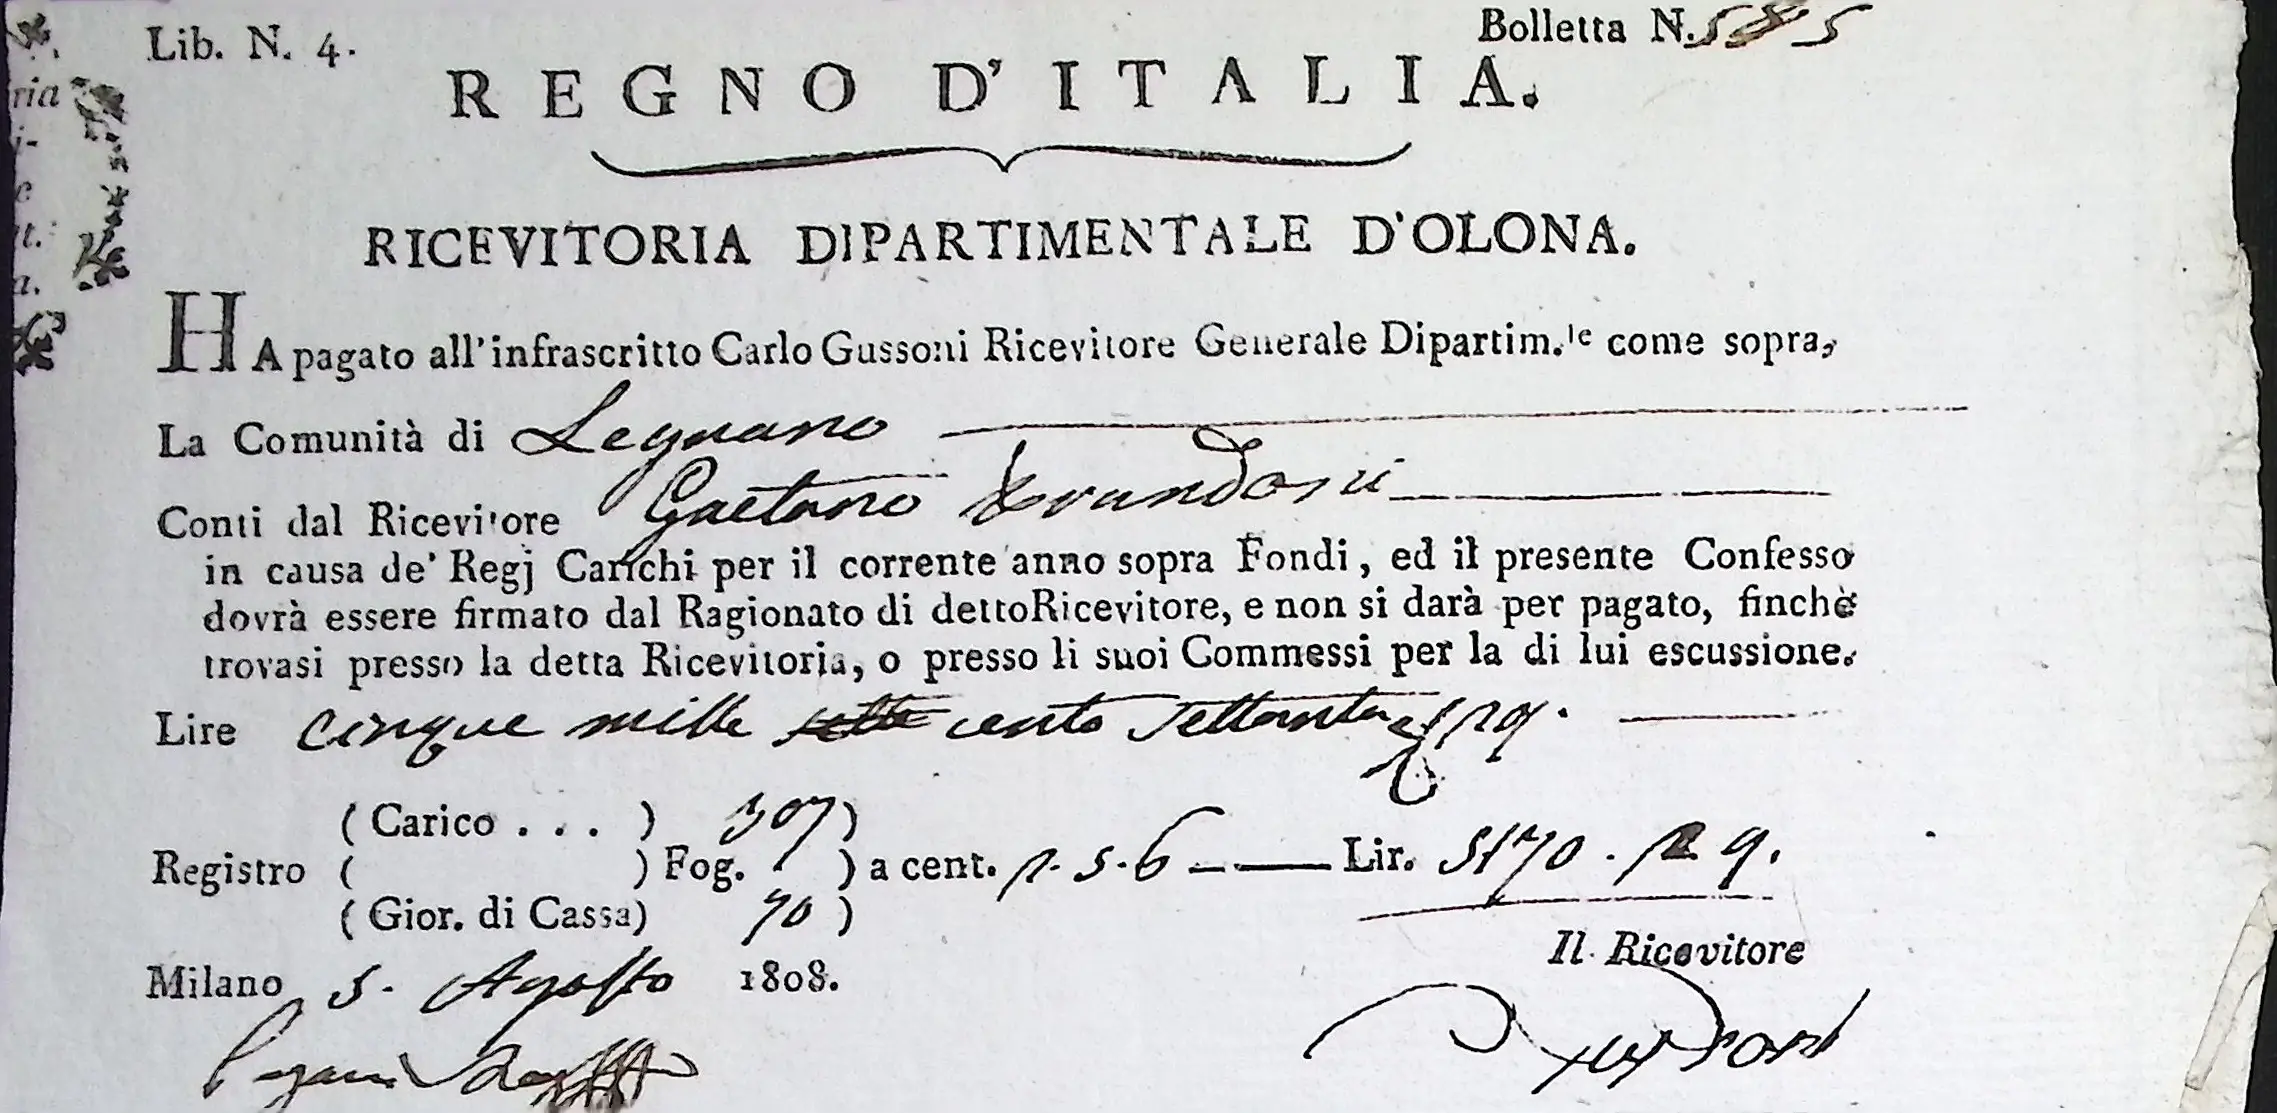 Lib. N. 4.
Bolletta N. 585
REGNO D'ITALIA.
RICEVITORIA DIPARTIMENTALE D'OLONA.
HA pagato all'infrascritto Carlo Gussoni Ricevitore Generale Dipartim.le come sopra,
La Comunità di Legnano
Conti dal Ricevitore Gaetano
in causa de' Regj Carichi per il corrente anno sopra Fondi, ed il presente Confesso
dovrà essere firmato dal Ragionato di detto Ricevitore, e non si darà per pagato, finchè
trovasi presso la detta Ricevitoria, o presso li suoi Commessi per la di lui escussione.
Lire cinque mille cento settanta
( Carico . . . ) 307 )
Registro ( ) Fog. ) a cent. Lir. 5170.
( Gior. di Cassa) 70 )
Milano 5. Agosto 1808.
Il Ricevitore
ria
i-
e
t.
a.